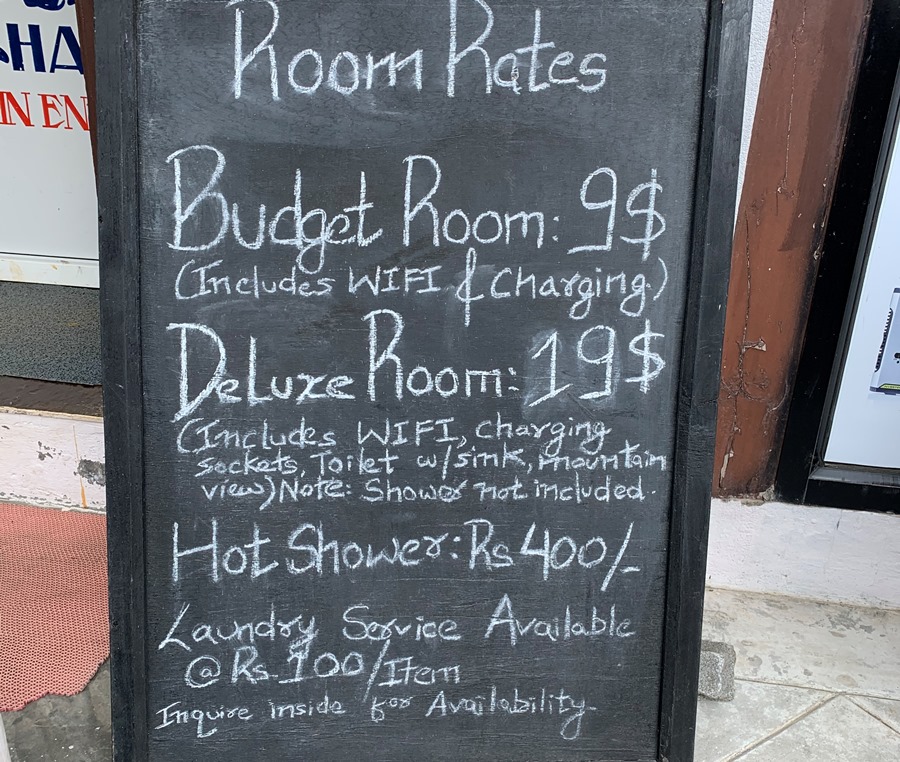 Room Rates
Budget Room: 9$
(Includes WIFI & Charging)
Deluxe Room: 19$
(Includes WIFI, charging
sockets, Toilet w/sink, Mountain
view) Note: Shower not included.
Hot Shower: Rs 400/-
Laundry Service Available
@ Rs 100/Item
Inquire inside for Availability
HA
IN EN